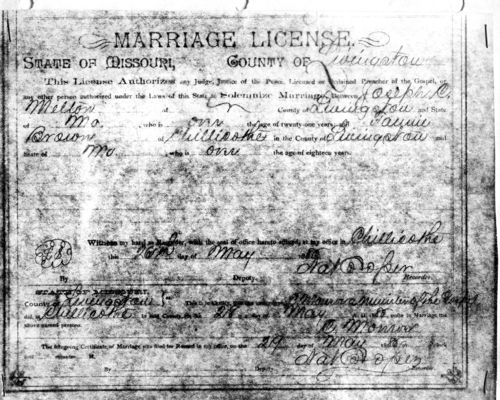 MARRIAGE LICENSE.
STATE OF MISSOURI, COUNTY OF Livingston
This License Authorizes any Judge, Justice of the Peace, Licensed or Ordained Preacher of the Gospel, or
any other person authorized under the Laws of this State to Solemnize Marriage Between Joseph C.
Mellon of County of Livingston and State
of Mo. , who is over the age of twenty-one years, and Fannie
Brown of Chillicothe in the County of Livingston and
State of Mo , who is over the age of eighteen years.
Witness my hand as Recorder, with the seal of office hereto affixed, at my office in Chillicothe
this day of May
By Deputy. Nat Cooper Recorder.
STATE OF MISSOURI,
County of Livingston This is to certify, that the undersigned minister of the Gospel
did, in Chillicothe in said County, on the 28 day of May unite in Marriage the
above named persons.
The foregoing Certificate of Marriage was filed for Record in my office, on the 29 day of May
By Deputy. Nat Cooper Recorder.